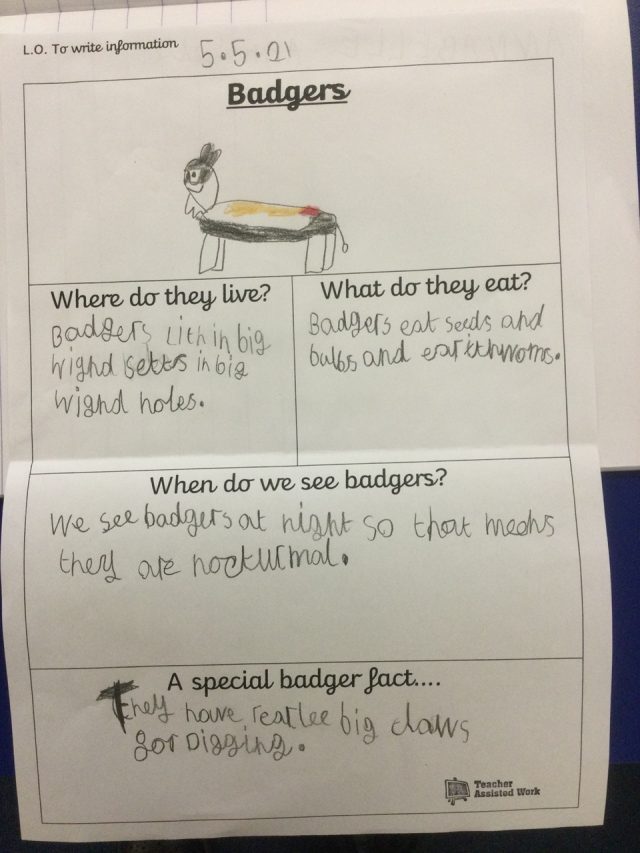 L.O. To write information
5.5.21
Badgers
Where do they live?
Badgers Lith in big
wighd setts in big
wighd holes.
What do they eat?
Badgers eat seeds and
bulbs and earithwoms.
When do we see badgers?
We see badgers at night so that means
they are nockurmal.
A special badger fact....
They have rearlee big claws
for Digging.
Teacher
Assisted Work